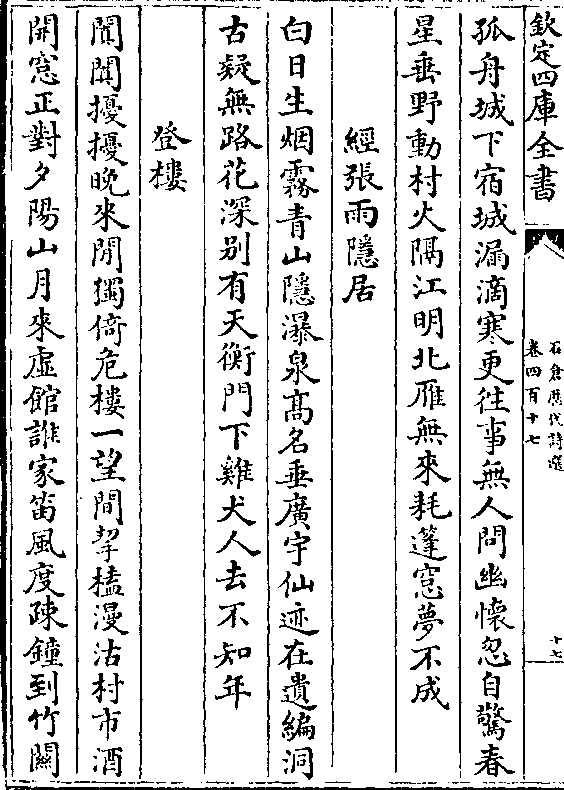 欽定四庫全書
石倉歷代詩選
卷四百十七
十七
孤舟城下宿城漏滴寒更往事無人問幽懷忽自驚春
星垂野動村火隔江明北雁無來耗蓬窓夢不成
經張雨隱居
白日生烟霧青山隱瀑泉髙名垂廣宇仙迹在遺編洞
古疑無路花深别有天衡門下雞犬人去不知年
登樓
閧閧擾擾晚來閒獨倚危樓一望間挈榼漫沽村市酒
開窓正對夕陽山月來虛館誰家笛風度疎鐘到竹闗